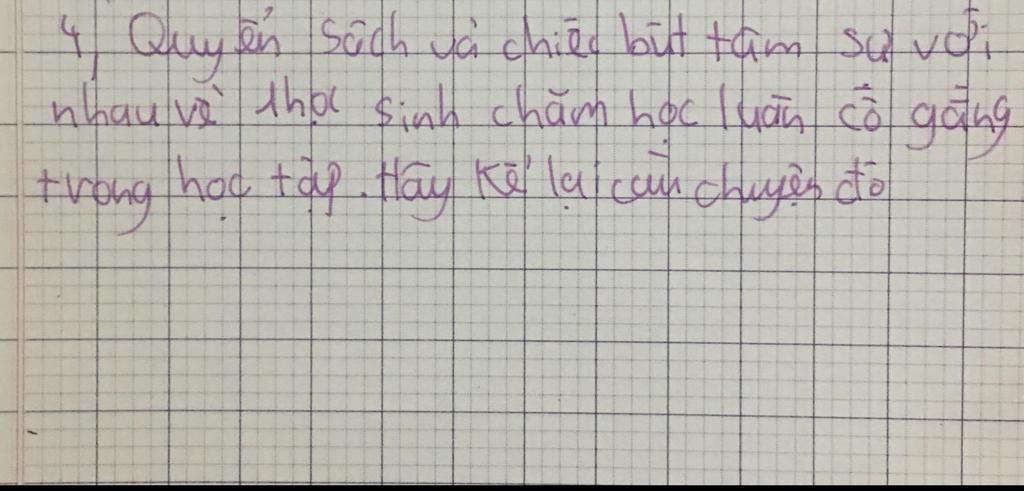 4, Quyển sách và chiếc bút tâm sự với
nhau về 1 học sinh chăm học luôn cố gắng
trong học tập. Hãy kể lại câu chuyện đó